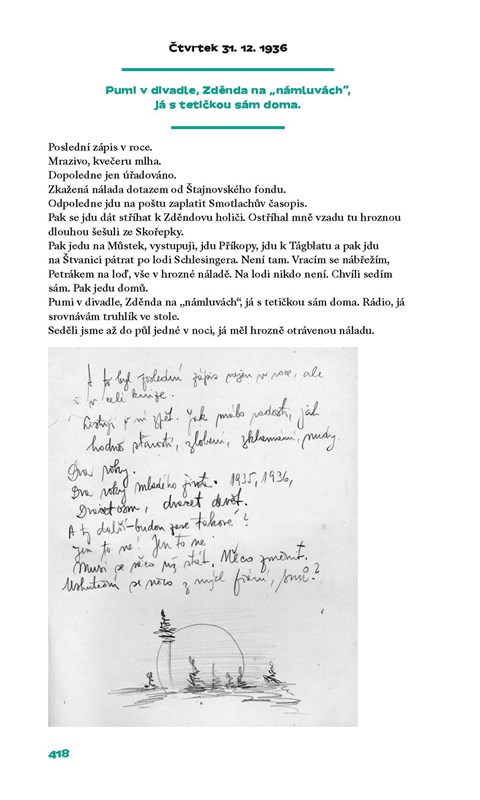 Čtvrtek 31. 12. 1936
Pumi v divadle, Zděnda na „námluvách“,
já s tetičkou sám doma.
Poslední zápis v roce.
Mrazivo, kvečeru mlha.
Dopoledne jen úřadováno.
Zkažená nálada dotazem od Štajnovského fondu.
Odpoledne jdu na poštu zaplatit Smotlachův časopis.
Pak se jdu dát stříhat k Zděndovu holiči. Ostříhal mně vzadu tu hroznou
dlouhou šešuli ze Skořepky.
Pak jedu na Můstek, vystupuji, jdu Příkopy, jdu k Tágblatu a pak jdu
na Štvanici pátrat po lodi Schlesingera. Není tam. Vracím se nábřežím,
Petrákem na loď, vše v hrozné náladě. Na lodi nikdo není. Chvíli sedím
sám. Pak jedu domů.
Pumi v divadle, Zděnda na „námluvách“, já s tetičkou sám doma. Rádio, já
srovnávám truhlík ve stole.
Seděli jsme až do půl jedné v noci, já měl hrozně otrávenou náladu.
A to byl poslední zápis nejen v roce, ale
i v celé knize.
Listuji v ní zpět. Jak málo radosti, jak
hodně starostí, zlobení, zklamání, nudy.
Dva roky.
Dva roky mladého života. 1935, 1936,
Dvacet osm, dvacet devět.
A ty další – budou zase takové?
Jen to ne! Jen to ne!
Musí se něco už stát. Něco změnit.
Uskuteční se něco z mých přání, snů?
418